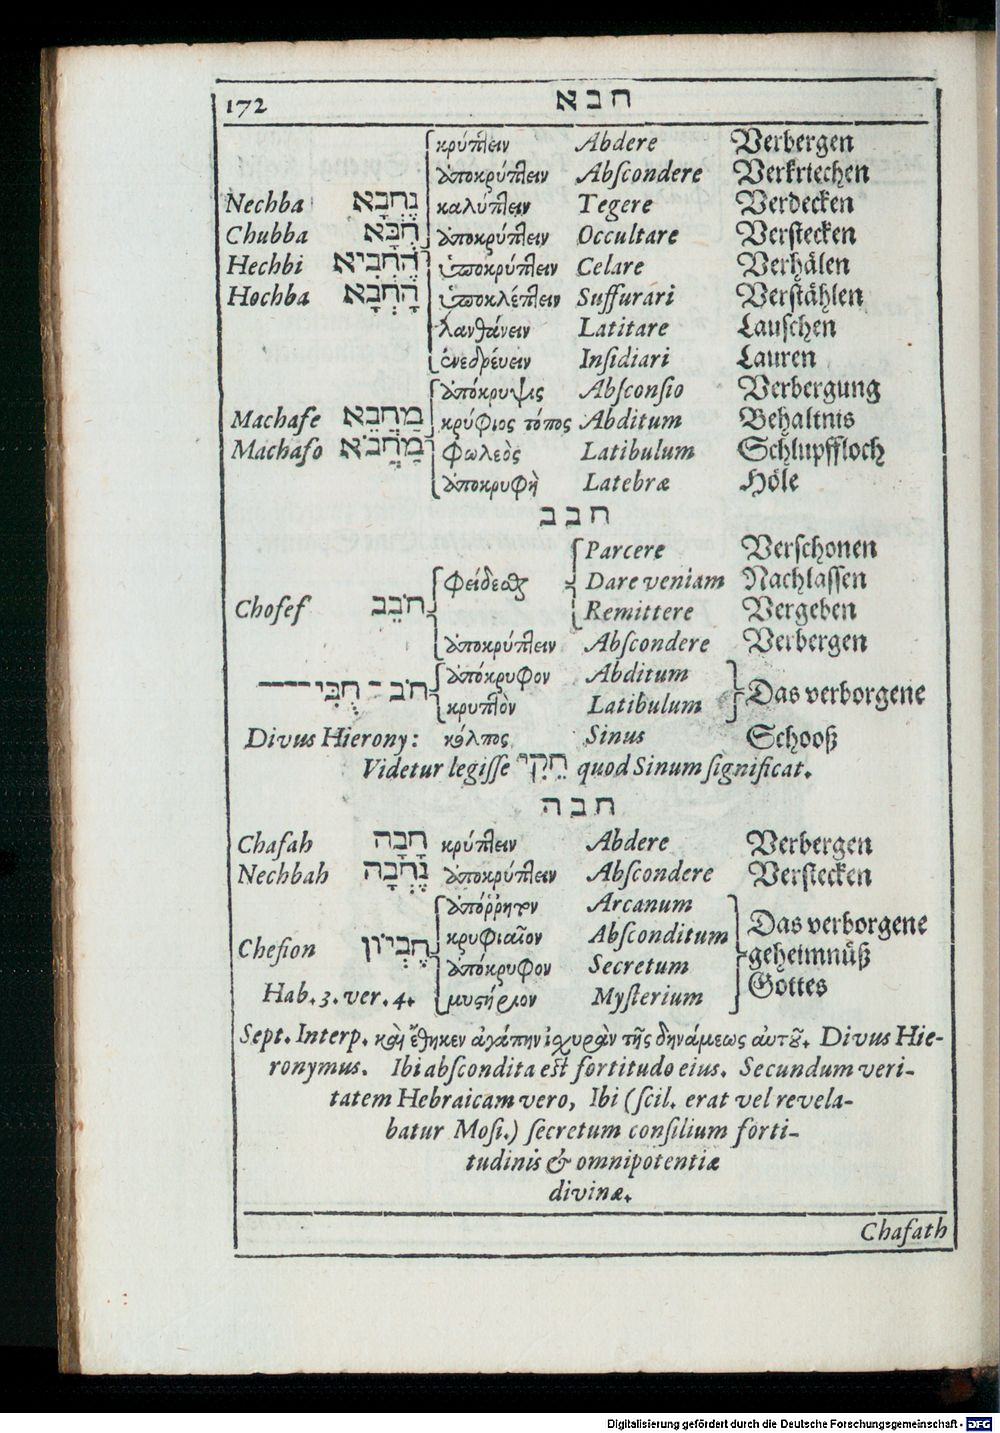 172 חבא
κρύπτειν Abdere Verbergen
ἀποκρύπτειν Abſcondere Verkriechen
Nechba נֶחְבָּא καλύπτειν Tegere Verdecken
Chubba חֻבָּא ἀποκρύπτειν Occultare Verſtecken
Hechbi הֶחְבִּיא ὑποκρύπτειν Celare Verhälen
Hochba הָחְבָּא ὑποκλέπτειν Suffurari Verſtählen
λανθάνειν Latitare Lauſchen
ἐνεδρέυειν Inſidiari Lauren
ἀπόκρυψις Abſconſio Verbergung
Machafe מַחֲבֵא κρύφιος τόπος Abditum Behaltnis
Machafo מַחֲבֹא φωλεὸς Latibulum Schlupffloch
ἀποκρυφὴ Latebræ Höle
חבב
Parcere Verſchonen
φείδεσθαι Dare veniam Nachlaſſen
Chofef חֹבֵב Remittere Vergeben
ἀποκρύπτειν Abſcondere Verbergen
ἀπόκρυφον Abditum
חֹב - חֻבִּי κρυπτὸν Latibulum Das verborgene
Divus Hierony: κόλπος Sinus Schooß
Videtur legiſſe חֵקִי quod Sinum ſignificat.
חבה
Chafah חָבָה κρύπτειν Abdere Verbergen
Nechbah נֶחְבָּה ἀποκρύπτειν Abſcondere Verſtecken
ἀπόῤῥητον Arcanum
Chefion חֶבְיוֹן κρυφιαῖον Abſconditum Das verborgene
ἀπόκρυφον Secretum geheimnüß
Hab. 3. ver. 4. μυστήριον Myſterium Gottes
Sept. Interp. καὶ ἔθηκεν ἀγάπην ἰσχυρὰν τῆς δηνάμεως ἀυτοῦ. Divus Hie-
ronymus. Ibi abſcondita eſt fortitudo eius. Secundum veri-
tatem Hebraicam vero, Ibi (ſcil. erat vel revela-
batur Moſi.) ſecretum conſilium forti-
tudinis & omnipotentiæ
divinæ.
Chafath
Digitalisierung gefördert durch die Deutsche Forschungsgemeinschaft - DFG